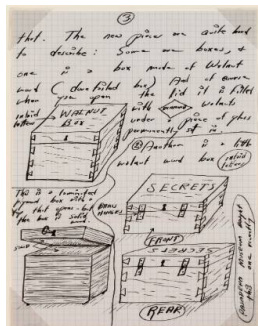 ③
that. The new pieces are quite hard
to describe: Some are boxes, &
one is a box made of Walnut
wood (dovetailed box) And of course
when you open the lid it is filled
with walnuts
under piece of glass
permanently set in.
raised letters
WALNUT
BOX
② Another is a little
walnut wood box (raised
letters)
This is a laminated
plywood box with a
top that opens - but
the box is solid
wood.
BRASS
HANDLE
SOLID
SECRETS
FRONT
SECRETS
REAR
Hampton Museum bought
one recently